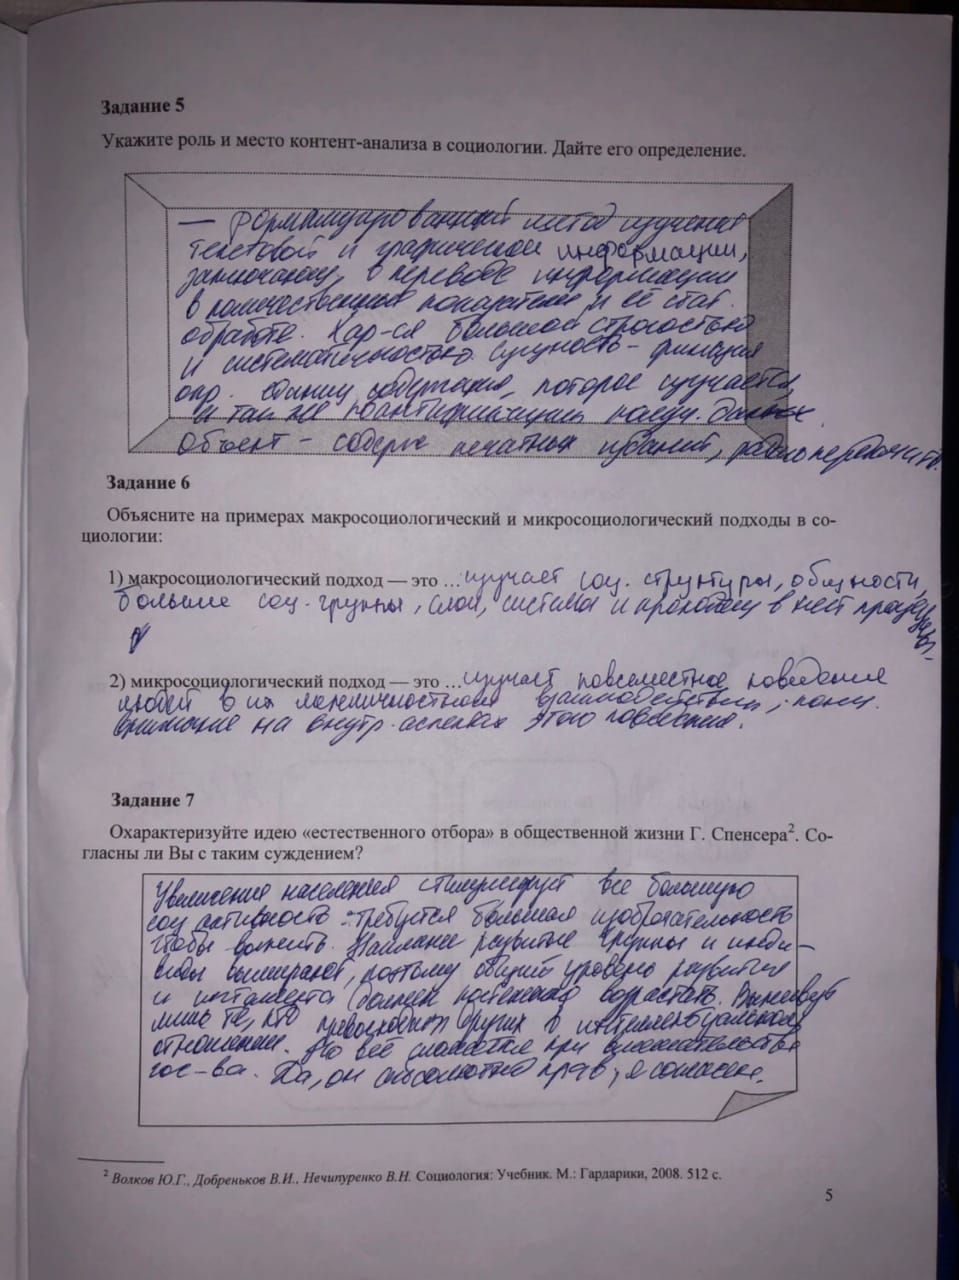 Задание 5
Укажите роль и место контент-анализа в социологии. Дайте его определение.
— формализированный метод изучения
текстовой и графической информации,
заключающ. в переводе информации
в количественные показатели и её стат.
обработке. Хар-ся большой строгостью
и систематичностью. Сущность – фиксация
опр. единиц содержания, которое изучается,
а так же квантификация получ. данных.
Объект – содерж. печатных изданий, радиопередач и тв.
Задание 6
Объясните на примерах макросоциологический и микросоциологический подходы в со-
циологии:
1) макросоциологический подход — это ... изучает соц. структуры, общности,
большие соц. группы, слои, системы и происходящ. в них процессы.
2) микросоциологический подход — это ... изучает повсеместное поведение
людей в их межличностном взаимодействии,
внимание на внутр. аспектах этого поведения.
Задание 7
Охарактеризуйте идею «естественного отбора» в общественной жизни Г. Спенсера². Со-
гласны ли Вы с таким суждением?
Увеличение населения стимулирует все большую
соц активность: требуется большая изобретательность
чтобы выжить. Наименее развитые группы и инди-
виды вымирают, поэтому общий уровень развития
и интеллекта должен постепенно возрастать. Выживут
лишь те, кто превосходит других в интеллектуальном
отношении. Но всё сломается при вмешательстве
гос-ва. Да, он абсолютно прав, я согласен.
² Волков Ю.Г., Добреньков В.И., Нечипуренко В.Н. Социология: Учебник. М.: Гардарики, 2008. 512 с.
5